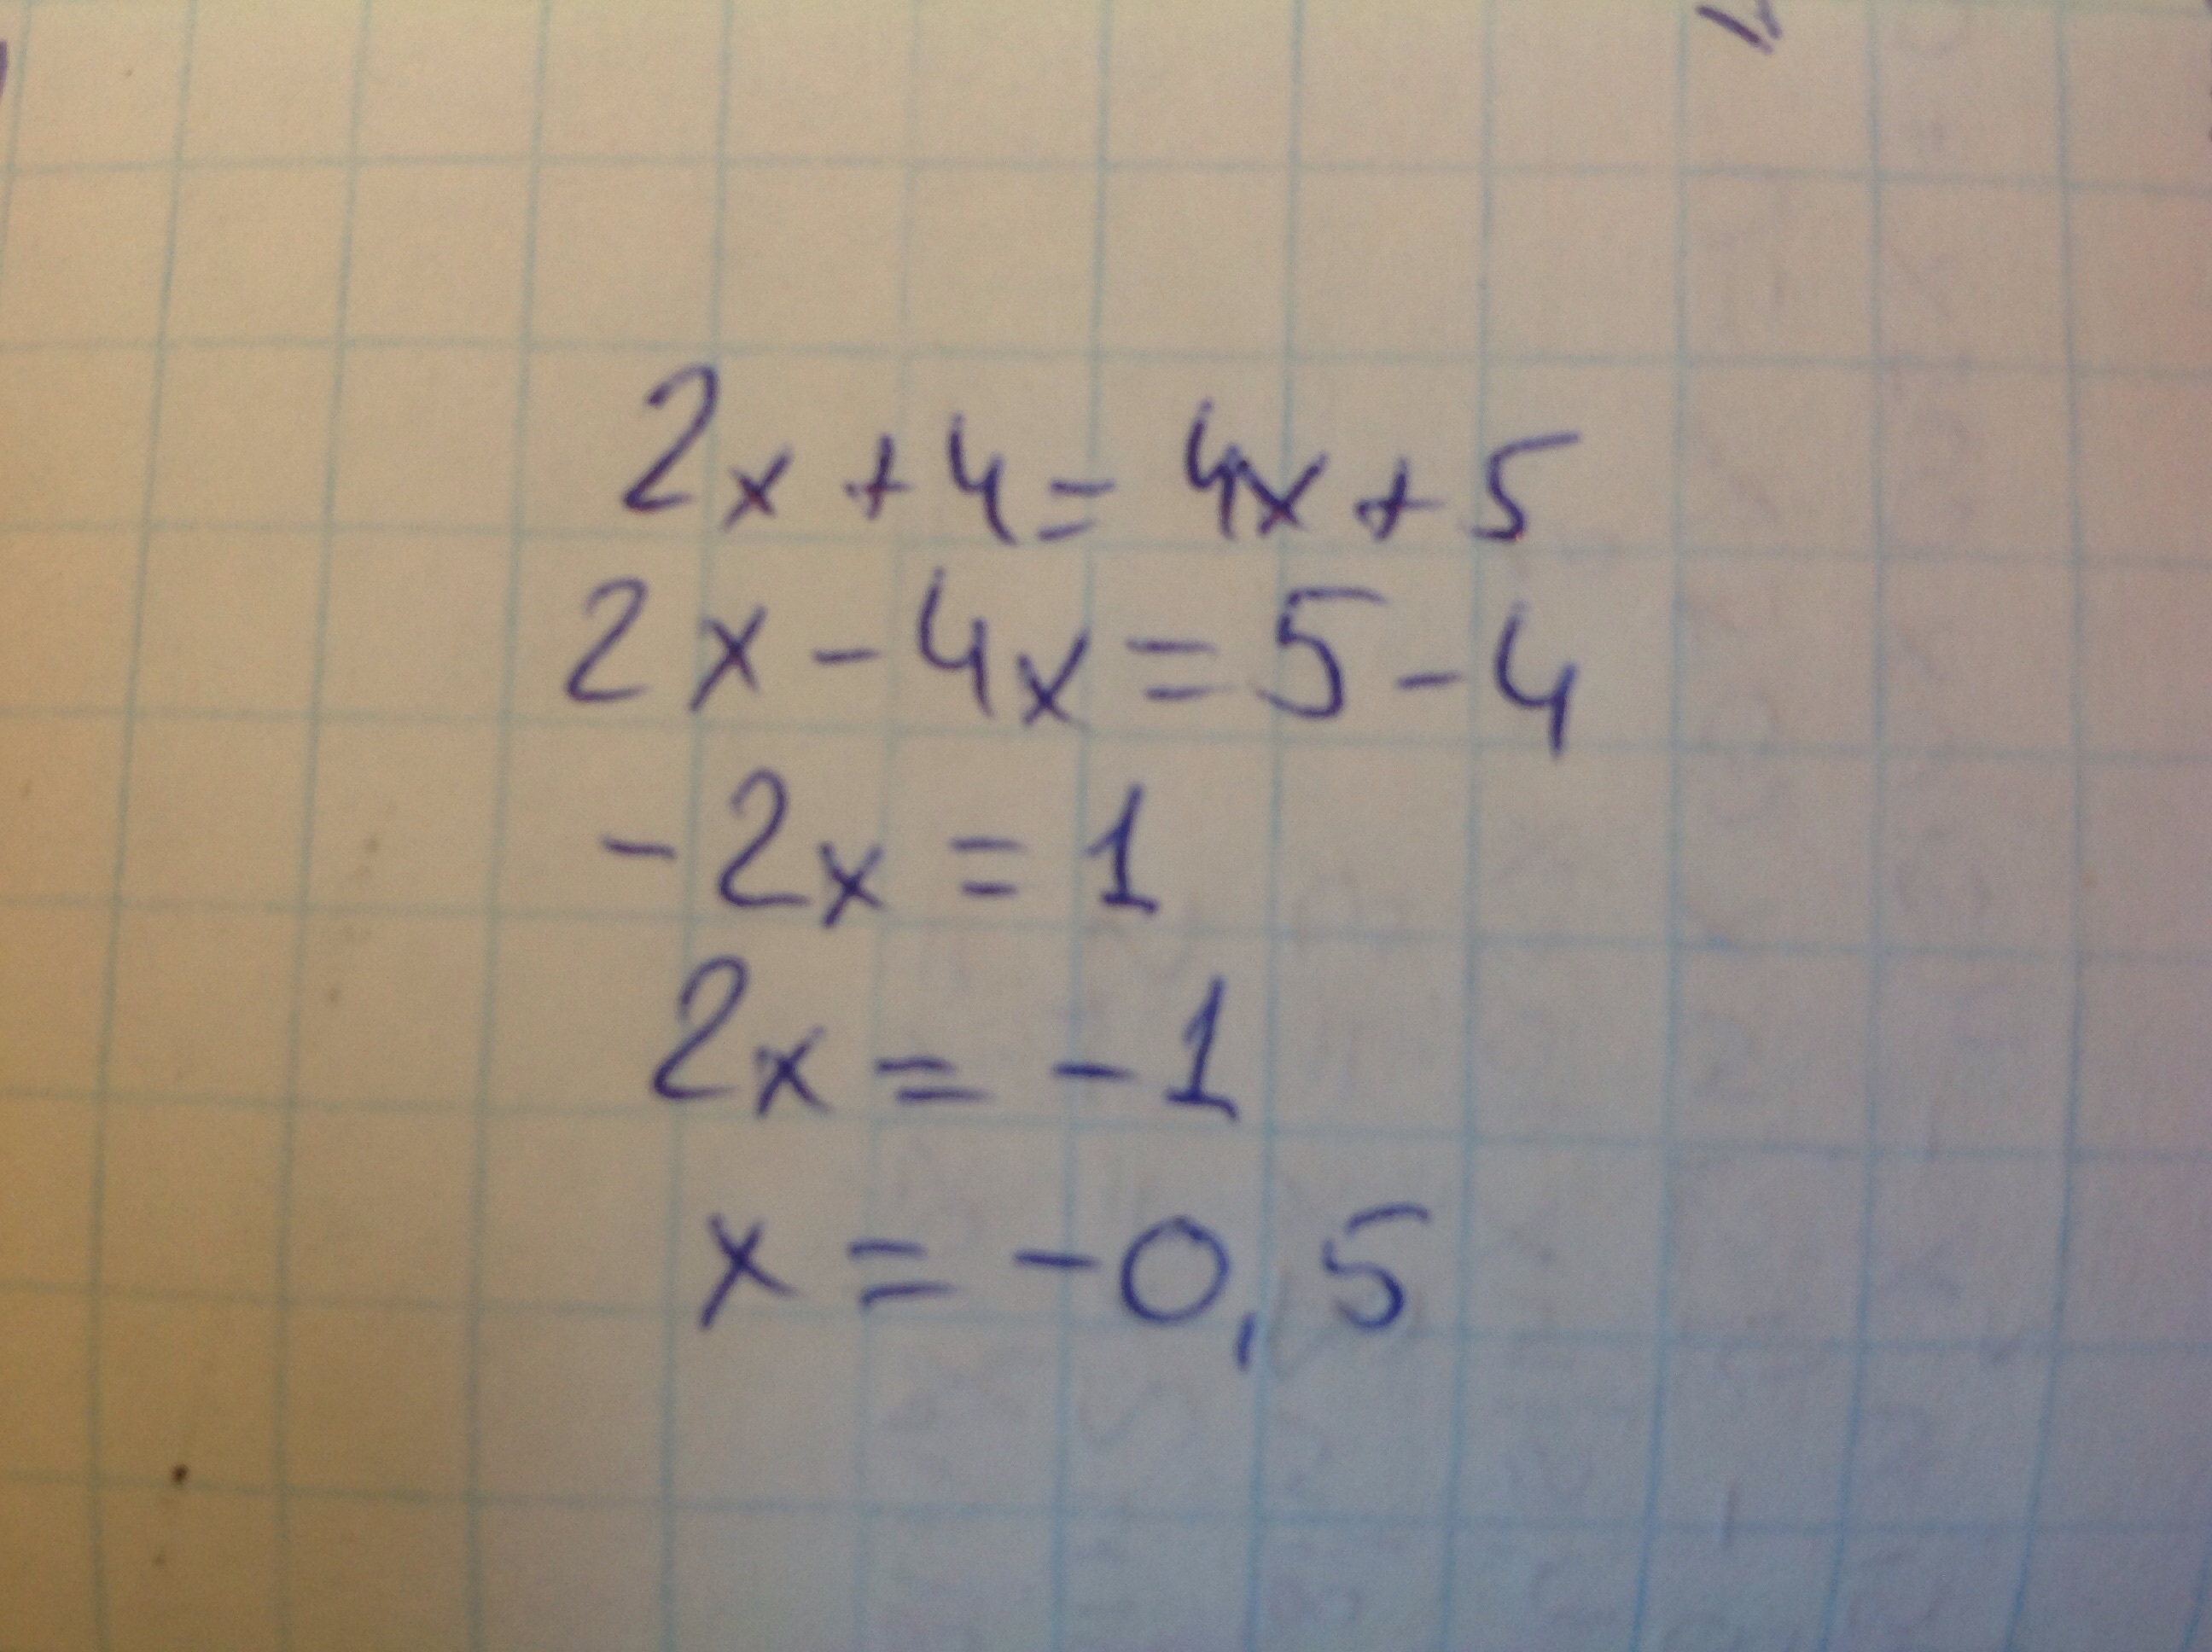 2x + 4 = 4x + 5
2x - 4x = 5 - 4
- 2x = 1
2x = - 1
x = - 0,5